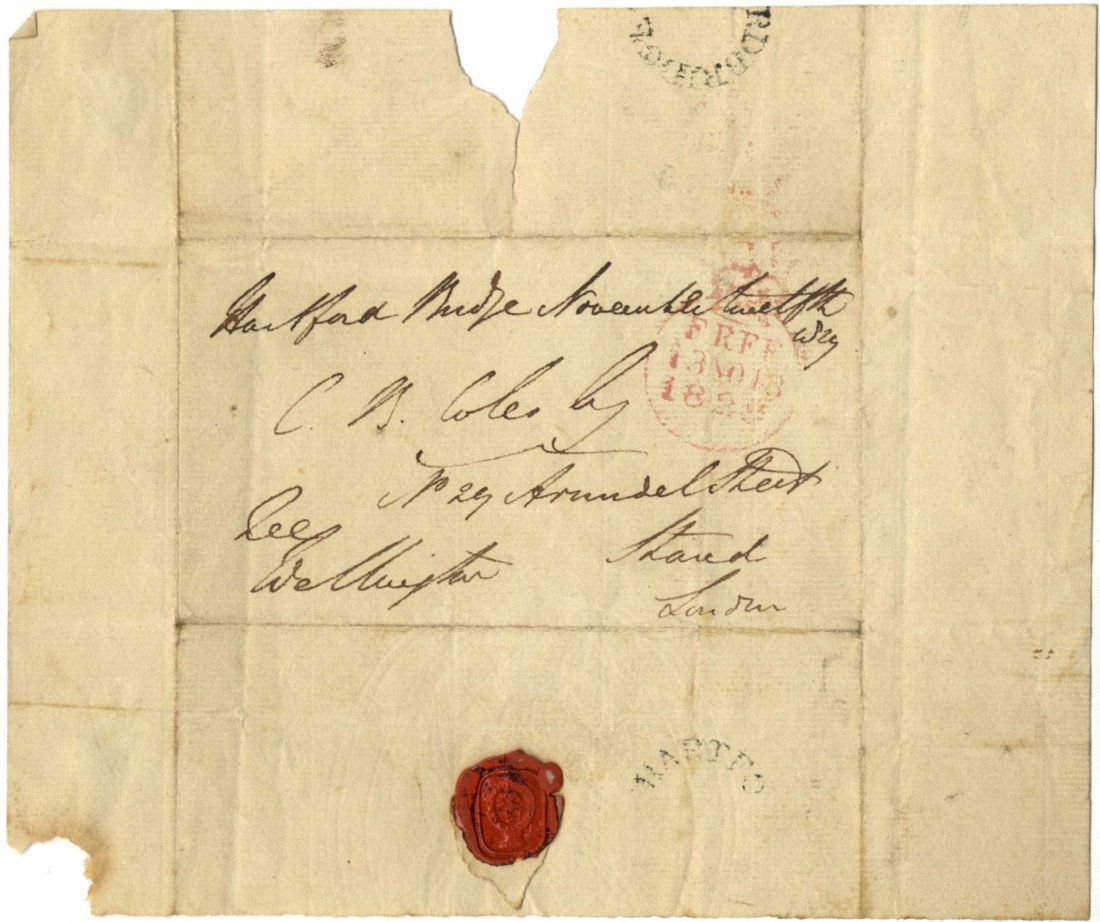 RDBRIDGE
Hartford Bridge November twelfth
1829
FREE
13 NO 13
1829
C. B. Coles Esq
No 29 Arundel Street
Free
Strand
Wellington
London
HARTFO